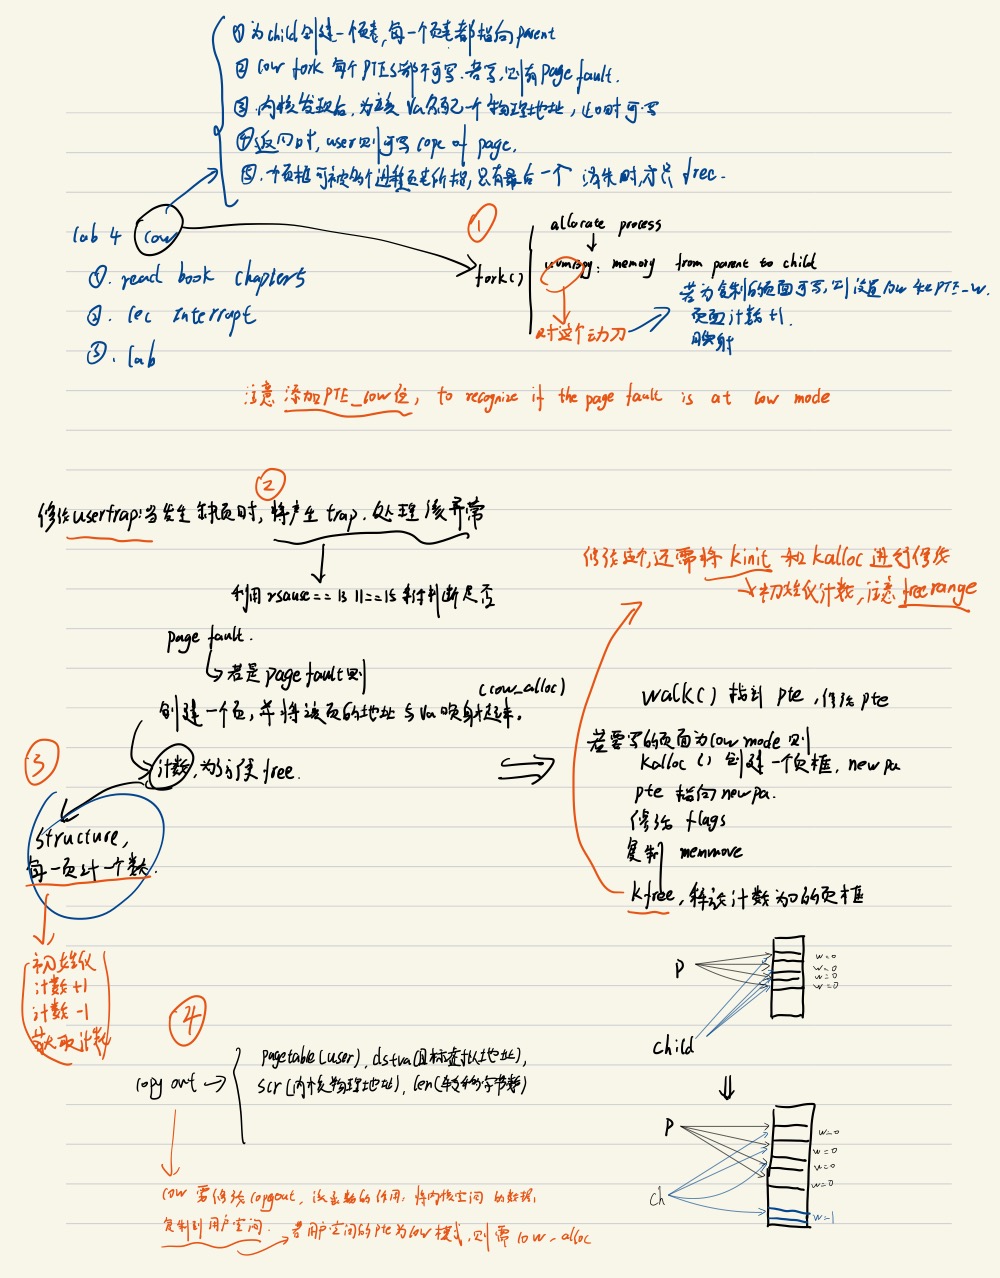 ① 为child创建一个页表,每一个页表都指向parent
② cow fork 每个PTEs都不可写.若写,则有page fault.
③.内核发现后,为该 va 分配一个物理地址,此时可写
④返回时,user则可写 cope of page.
⑤.一个页框可被多个进程页表所指,只有最后一个 消失时,才只 free.
lab 4 cow
①. read book chapter5
②. lec Interrupt
③. lab
①
fork()
allocate process
: memory from parent to child
若为复制的页面可写,则设置cow 和PTE_W.
页面计数+1.
映射
对这个动刀
注意 添加PTE_cow位, to recognize if the page fault is at cow mode
②
修改usertrap:当发生 缺页时,将产生 trap.处理该异常
利用 rsause == 13 ||==15 来判断是否
page fault.
若是page fault则
(cow_alloc)
创建一个页,并将该页的地址 与va 映射起来.
计数,为方便 free.
③
structure,
每一页计一个数.
初始化
计数+1
计数-1
获取计数
修改这个,还需将 kinit 和 kalloc 进行修改
初始化计数,注意 freerange
walk() 指到 pte ,修改 pte
若要写的页面为cow mode 则
kalloc() 创建一个页框, new pa
pte 指向 new pa.
修改 flags
复制 memmove
kfree,释放计数为0的页框
P
w=0
w=0
w=0
w=0
child
④
copy out
pagetable(user), dstva(目标虚拟地址),
scr(内核物理地址), len(的字节数)
cow 需修改copyout, 该函数的作用:将内核空间 的数据,
复制到用户空间.
若用户空间的pte为cow模式,则需 cow_alloc
P
w=0
w=0
w=0
w=0
ch
w=1